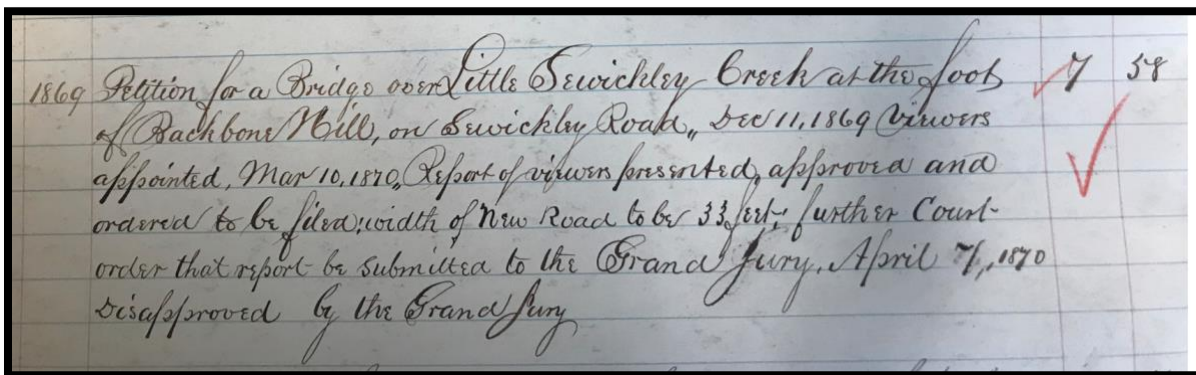 1869 Petition for a Bridge over Little Sewickley Creek at the foot 7 58
of Backbone Hill, on Sewickley Road,, Dec 11, 1869 Viewers
appointed, Mar 10, 1870,, Report of viewers presented, approved and
ordered to be filed; width of New Road to be 33 feet; further Court
order that report be submitted to the Grand Jury. April 7, 1870
Disapproved by the Grand Jury